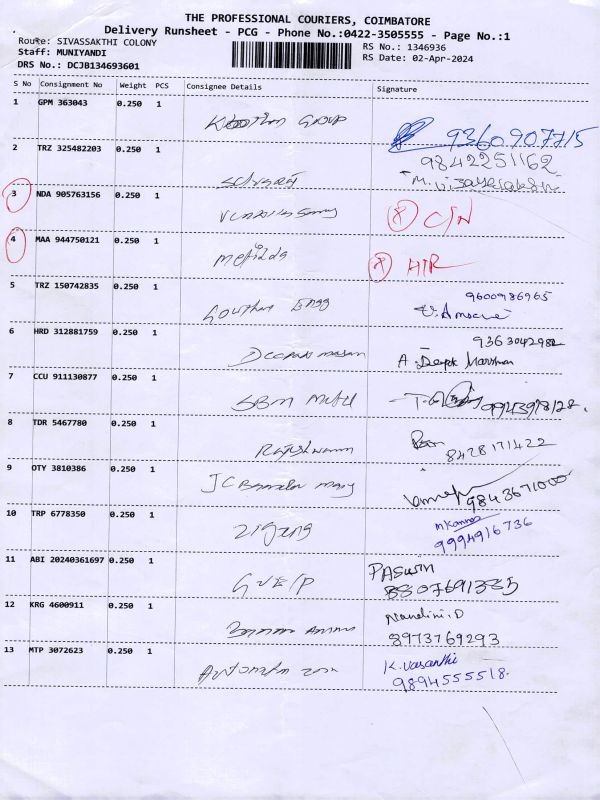 THE PROFESSIONAL COURIERS, COIMBATORE
Delivery Runsheet - PCG - Phone No.:0422-3505555 - Page No.:1
Route: SIVASSAKTHI COLONY
Staff: MUNIYANDI
DRS No.: DCJB134693601
RS No.: 1346936
RS Date: 02-Apr-2024
S No Consignment No Weight PCS Consignee Details Signature
1 GPM 363043 0.250 1 Group 9360907715
2 TRZ 325482203 0.250 1 9842251162
3 NDA 905763156 0.250 1 C/N
4 MAA 944750121 0.250 1 Metilda
5 TRZ 150742835 0.250 1 Southern Engg 9600986965
6 HRD 312881759 0.250 1 9363042982
A. Deepk
7 CCU 911130877 0.250 1 SBM
8 TDR 5467780 0.250 1 8428171422
9 OTY 3810386 0.250 1 JC 9843671000
10 TRP 6778350 0.250 1 M Kannan
9994916736
11 ABI 20240361697 0.250 1 PASWIN
8807691385
12 KRG 4600911 0.250 1 Nandini.D
8973769293
13 MTP 3072623 0.250 1 K. Vasanthi
9894555518.